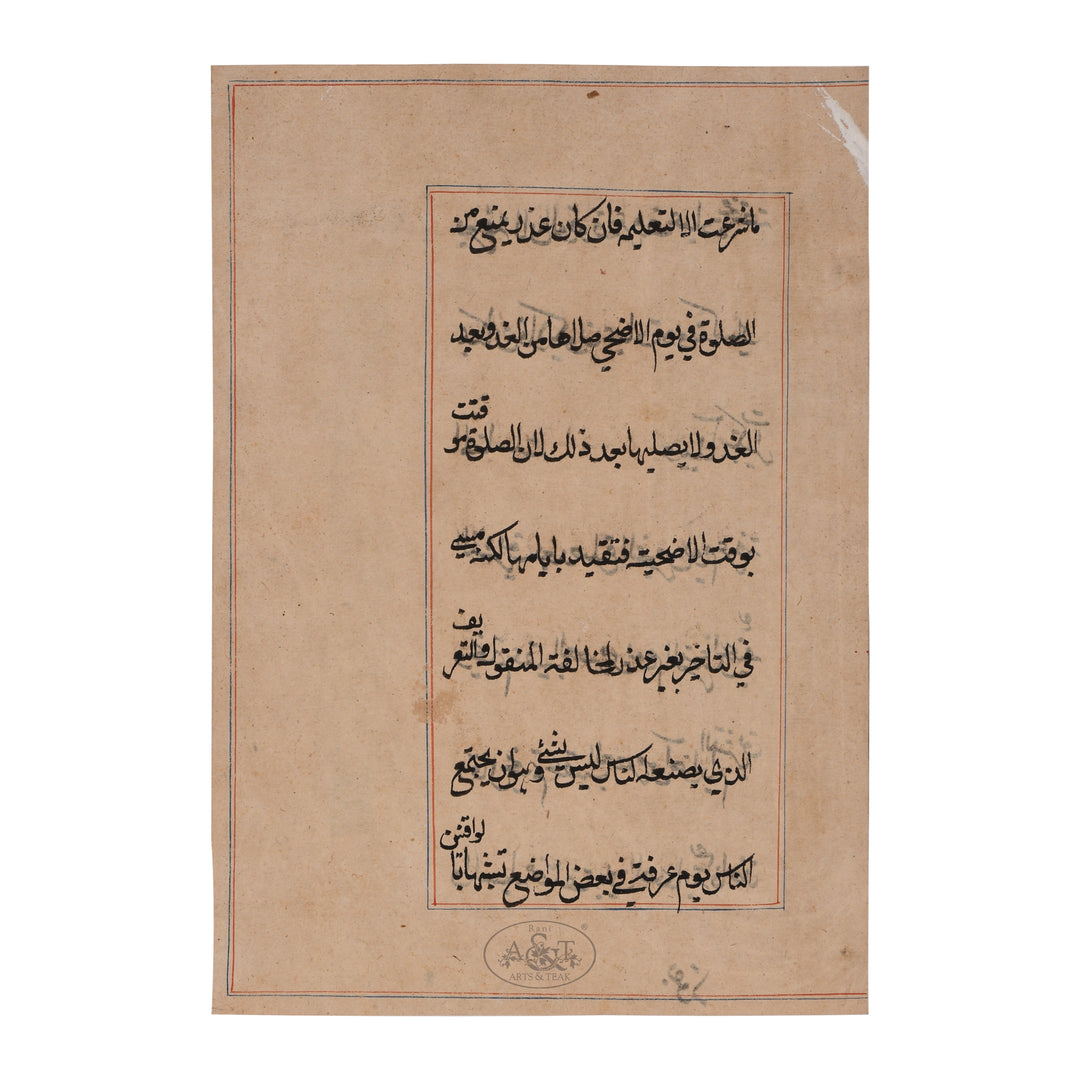 ما شرعت الا لتعليمه فان كان عذر يمنع من
الصلوة في يوم الاضحى صلاها من الغد وبعد
الغد ولا يصليها بعد ذلك لان الصلوة موقتت
بوقت الاضحية فتقيد بايامها لكنه مسيئ
في التاخير بغير عذر لمخالفة المنقول والتعريف
الذي يصنعه الناس ليس بشئ وهو ان يجتمع
الناس يوم عرفة في بعض المواضع تشبها بالواقفين
Rani
A&T
ARTS & TEAK
®